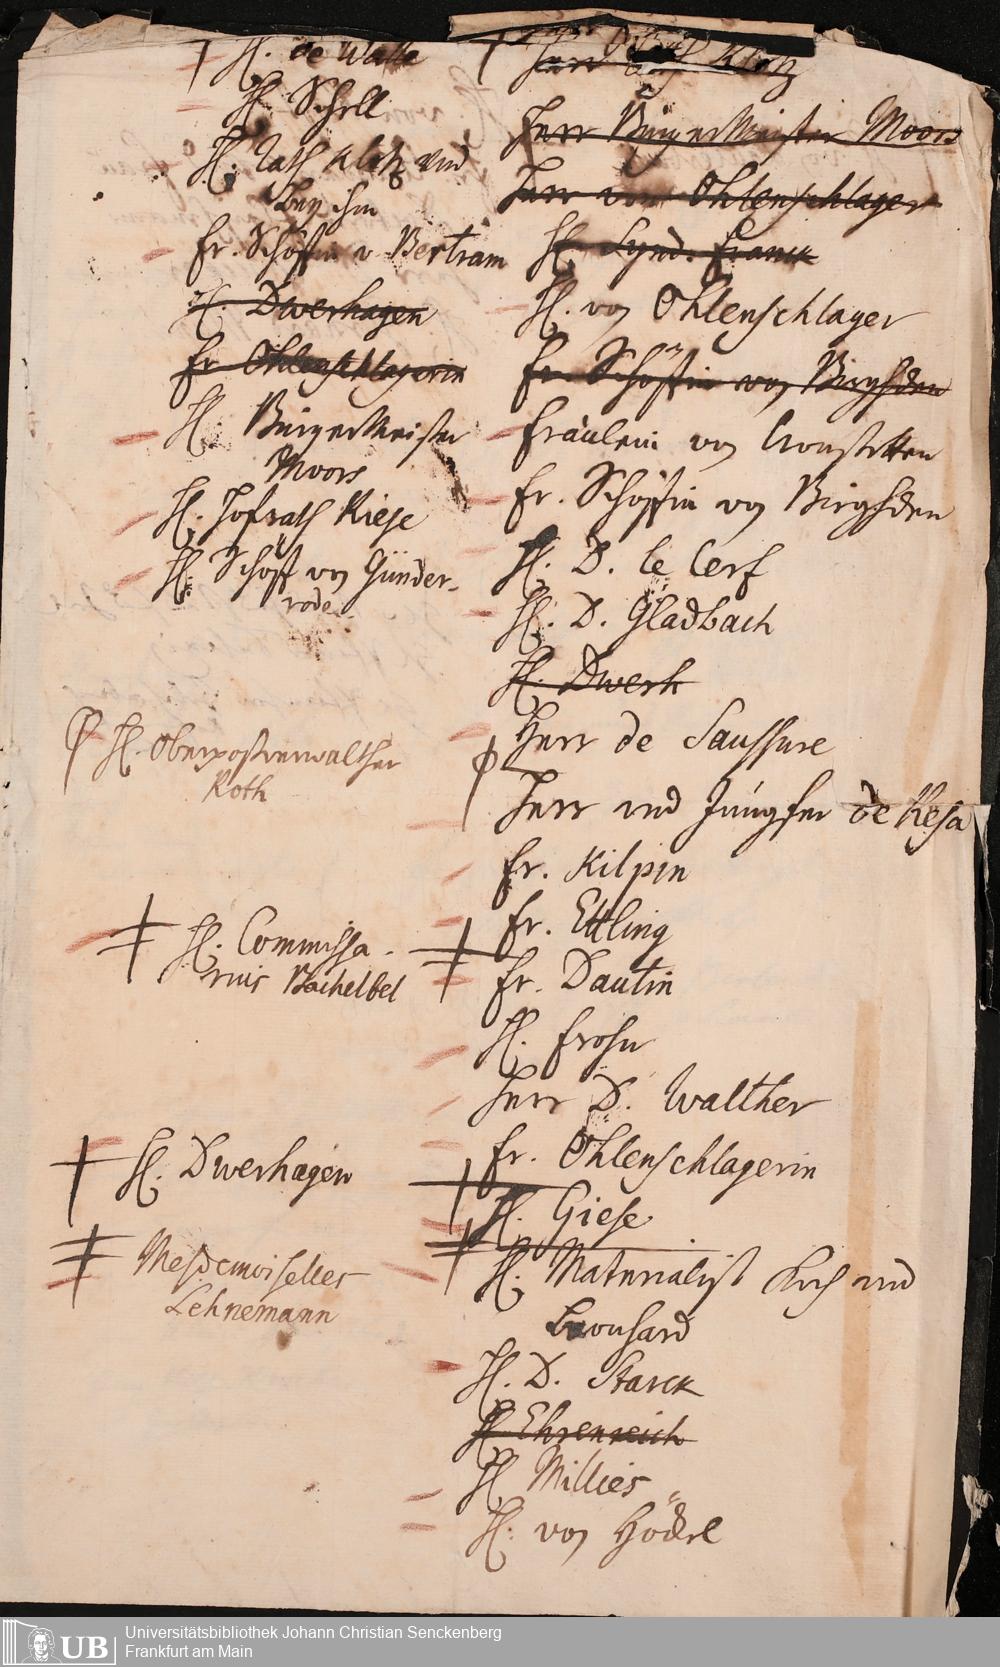 H. de Walle
H. Schell
H. Rath Klotz und
bey ihm
Fr. Schöffin v Bertram
H. Dwerhagen
Fr. Ohlenschlagerin
H. Burgermeister
Moors
H. Hofrath Riese
H. Schöff von Günder-
rode
H. Oberpostverwalther
Roth
H. Commissa-
rius Bachelbel
H. Dwerhagen
Mesdemoiselles
Lehnemann
Klotz
Herr Burgermeister Moors
Herr von Ohlenschlager
H. Synd. Franck
H. von Ohlenschlager
Fr. Schöffin von Birghden
Fräulein von Cronstetten
Fr. Schöffin von Birghden
H. D. le Cerf
H. D. Gladbach
H. Dwerh
Herr de Saussure
Herr und Jungfer de Resa
Fr. Kilpin
Fr. Ettling
Fr. Dautin
H. Frohn
Herr D. Walther
Fr. Ohlenschlagerin
H. Giese
H. Materialist Koch und
Bronhard
H. D. Starck
H. Ehrenreich
H. Millies
H. von Höckel
UB
Universitätsbibliothek Johann Christian Senckenberg
Frankfurt am Main